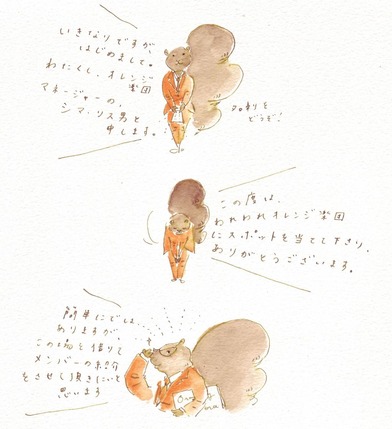 いきなりですが、
はじめまして。
わたくし、オレンジ
楽団
マネージャーの、
シマ・リス男と
申します。
どうぞ!
この度は、
われわれオレンジ楽団
にスポットを当てて下さり、
ありがとうございます。
簡単にでは
ありますが、
この場を借りて
メンバーの紹介
をさせて頂きたいと
思います